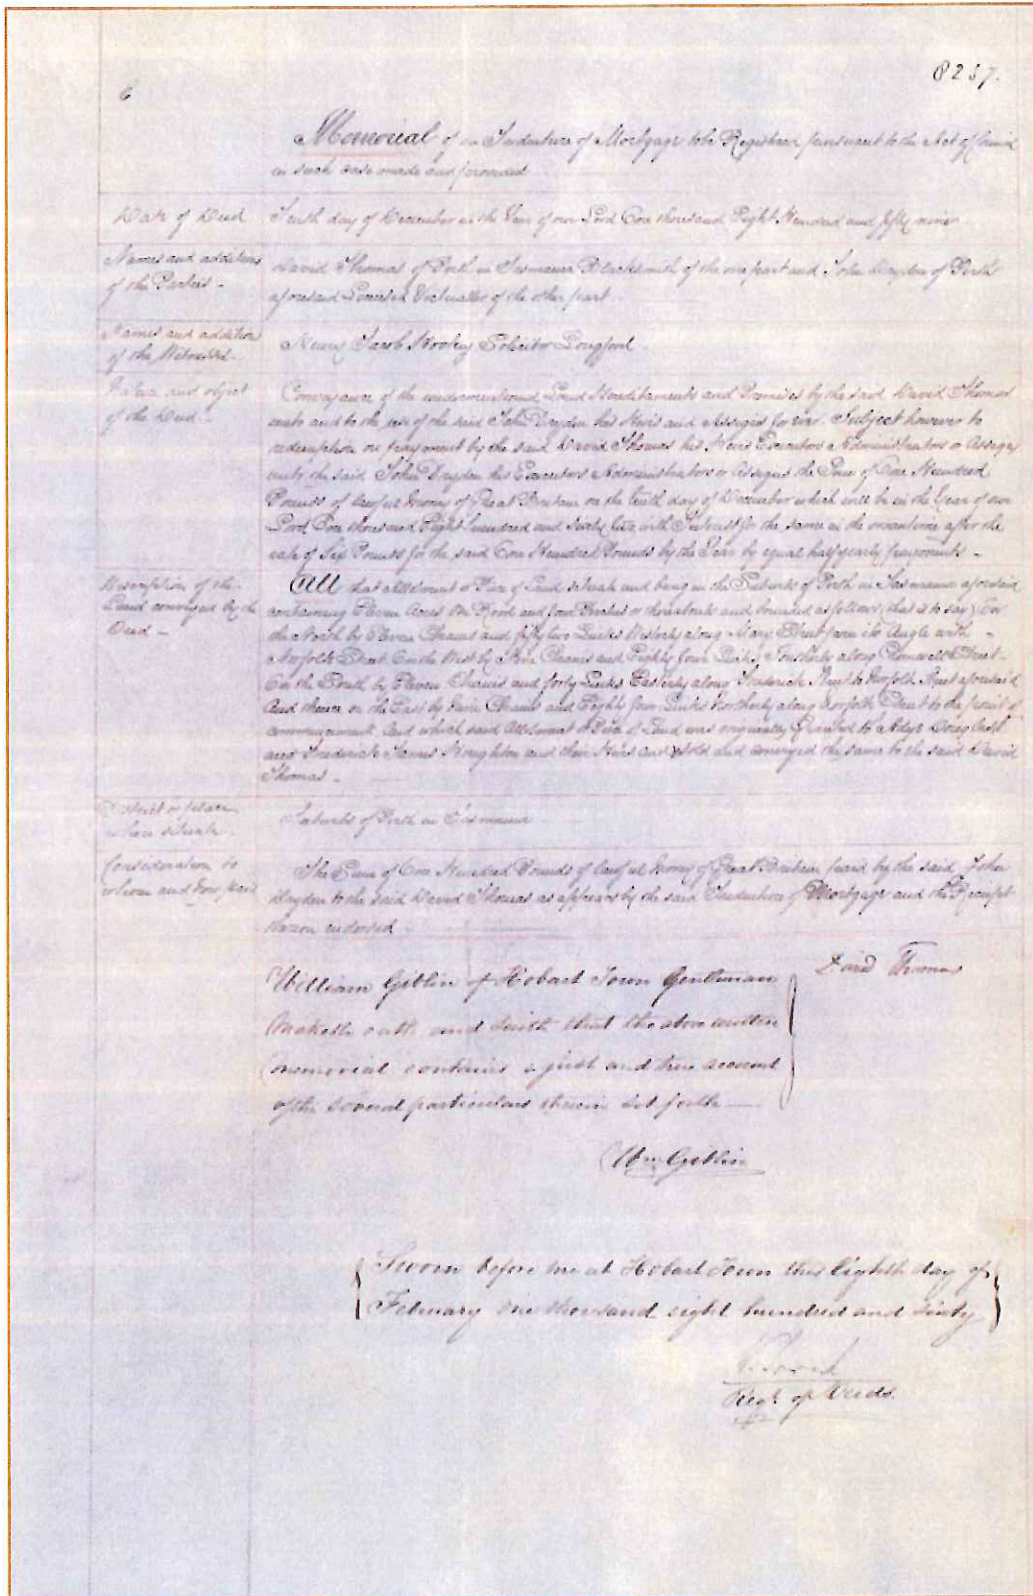 8237.
6
Memorial of an Indenture of Mortgage to be Registered pursuant to the Act of Council
in such case made and provided
Date of Deed
Tenth day of December in the Year of our Lord One thousand Eight Hundred and fifty nine
Names and additions
of the Parties -
David Thomas of Perth in Tasmania Blacksmith of the one part and John Dryden of Perth
aforesaid Licensed Victualler of the other part
Names and addition
of the Witnesses.
Henry Jacob Solicitor Longford.
Nature and object
of the Deed -
Conveyance of the undermentioned Land Hereditaments and Premises by the said David Thomas
unto and to the use of the said John Dryden his Heirs and Assigns for ever Subject however to
redemption on payment by the said David Thomas his Heirs Executors Administrators or Assigns
unto the said John Dryden his Executors Administrators or Assigns the Sum of One Hundred
Pounds of lawful Money of Great Britain on the tenth day of December which will be in the Year of our
Lord One thousand Eight hundred and sixty with Interest for the same in the meantime after the
rate of Six Pounds for the said One Hundred Pounds by the Year by equal half yearly payments -
Description of the
Land conveyed by the
Deed -
All that allotment or Piece of Land situate and being in the Suburbs of Perth in Tasmania aforesaid
containing Eleven Acres One Rood and four Perches or thereabouts and bounded as follows, that is to say On
the North by Eleven Chains and fifty two Links Westerly along Mary Street from its Angle with -
Norfolk Street On the West by Nine Chains and Eighty four Links Southerly along Cromwell Street -
On the South by Eleven Chains and forty Links Easterly along Frederick Street to Norfolk Street aforesaid
And thence on the East by Nine Chains and Eighty four Links Northerly along Norfolk Street to the point of
commencement And which said Allotment or Piece of Land was originally Granted to
and Frederick James Houghton and their Heirs and conveyed the same to the said David
Thomas -
District or place
where situate.
Suburbs of Perth in Tasmania
Consideration to
whom and how paid
The Sum of One Hundred Pounds of lawful Money of Great Britain paid by the said John
Dryden to the said David Thomas as appears by the said Indenture of Mortgage and the Receipt
thereon endorsed -
David Thomas
William Giblin of Hobart Town Gentleman
maketh oath and saith that the above written
memorial contains a just and true account
of the several particulars therein set forth —
Wm Giblin
Sworn before me at Hobart Town this Eighth day of
February one thousand eight hundred and sixty
Regr of Deeds.